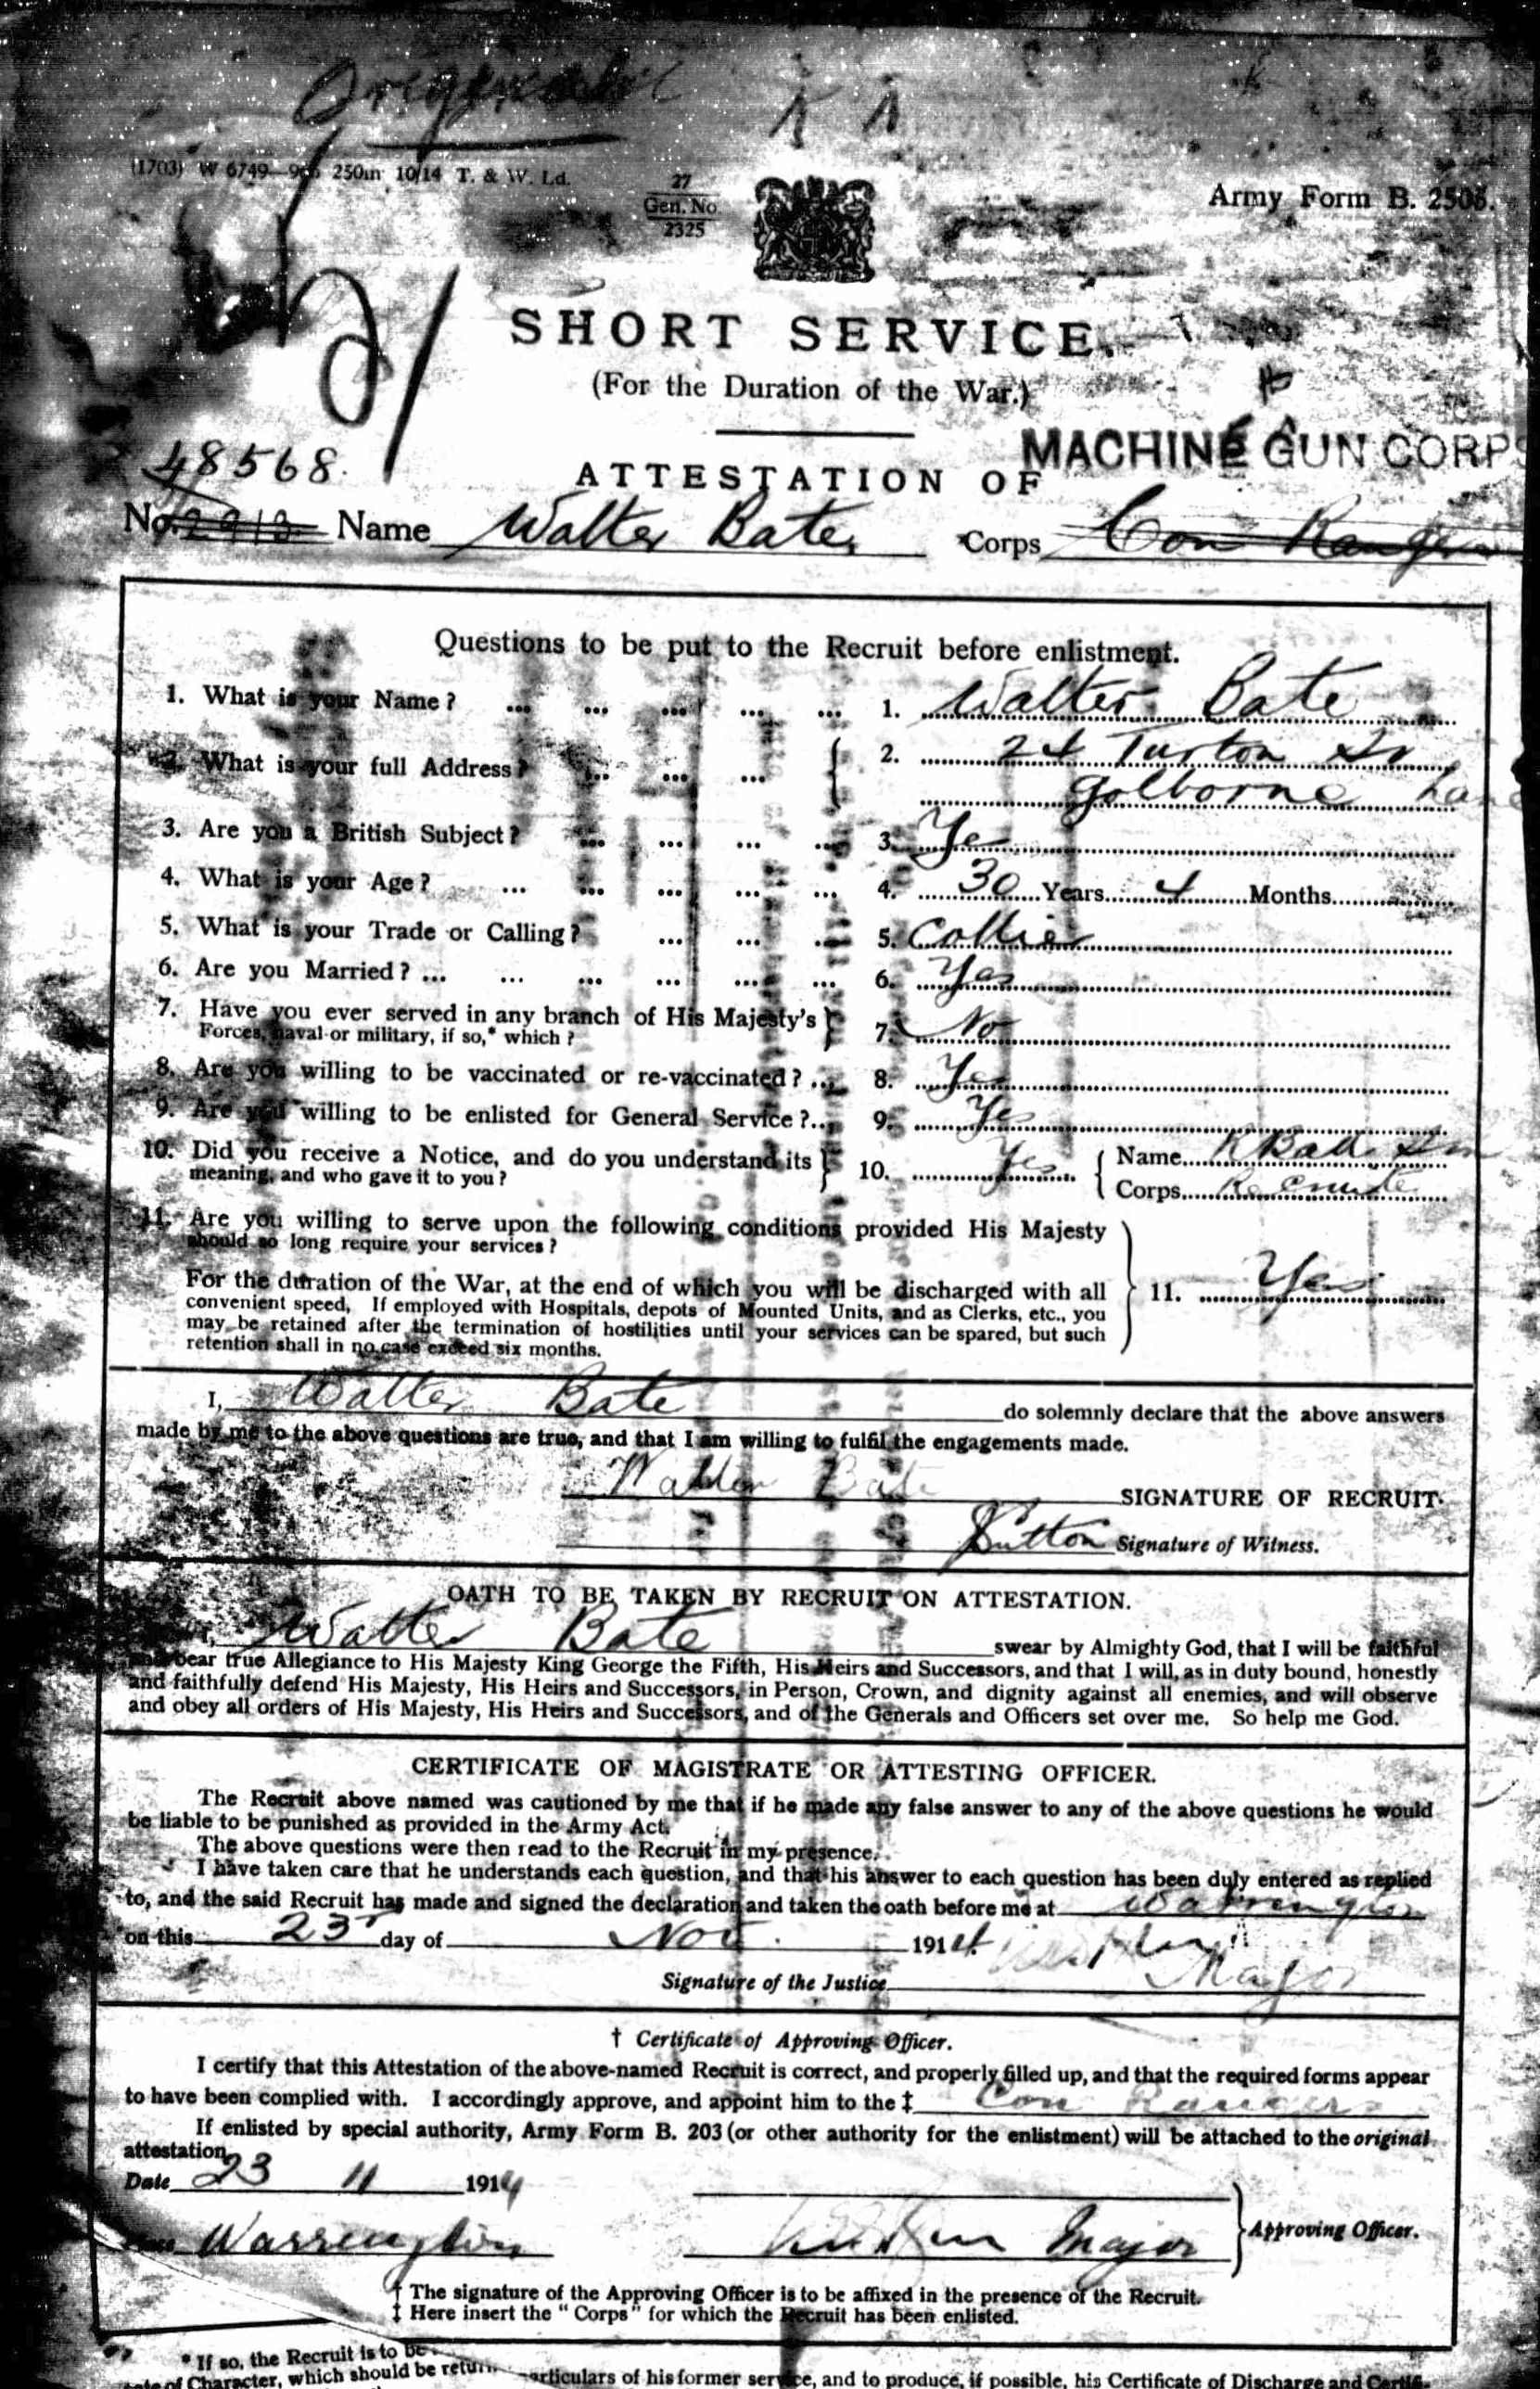 (1703) W 6749 250m 10/14 T. & W. Ld.
27
Gen. No.
2325
Army Form B. 2505.
SHORT SERVICE.
(For the Duration of the War.)
48568.
MACHINE GUN CORPS
ATTESTATION OF
No. 2913 Name Walter Bate Corps Con Rangers
Questions to be put to the Recruit before enlistment.
1. What is your Name? ... ... ... ... ... 1. Walter Bate
2. What is your full Address? ... ... ... 2. 24 Turton St
Golborne Lane
3. Are you a British Subject? ... ... ... ... 3. Yes
4. What is your Age? ... ... ... ... ... 4. 30 Years 4 Months
5. What is your Trade or Calling? ... ... ... 5. Collier
6. Are you Married? ... ... ... ... ... ... 6. Yes
7. Have you ever served in any branch of His Majesty's
Forces, naval or military, if so,* which? 7. No
8. Are you willing to be vaccinated or re-vaccinated? ... 8. Yes
9. Are you willing to be enlisted for General Service? ... 9. Yes
10. Did you receive a Notice, and do you understand its
meaning, and who gave it to you? 10. Yes { Name R Ball
Corps
11. Are you willing to serve upon the following conditions provided His Majesty
should so long require your services?
For the duration of the War, at the end of which you will be discharged with all
convenient speed. If employed with Hospitals, depots of Mounted Units, and as Clerks, etc., you
may be retained after the termination of hostilities until your services can be spared, but such
retention shall in no case exceed six months.
11. Yes
I, Walter Bate do solemnly declare that the above answers
made by me to the above questions are true, and that I am willing to fulfil the engagements made.
Walter Bate SIGNATURE OF RECRUIT.
Sutton Signature of Witness.
OATH TO BE TAKEN BY RECRUIT ON ATTESTATION.
I, Walter Bate swear by Almighty God, that I will be faithful
and bear true Allegiance to His Majesty King George the Fifth, His Heirs and Successors, and that I will, as in duty bound, honestly
and faithfully defend His Majesty, His Heirs and Successors, in Person, Crown, and dignity against all enemies, and will observe
and obey all orders of His Majesty, His Heirs and Successors, and of the Generals and Officers set over me. So help me God.
CERTIFICATE OF MAGISTRATE OR ATTESTING OFFICER.
The Recruit above named was cautioned by me that if he made any false answer to any of the above questions he would
be liable to be punished as provided in the Army Act.
The above questions were then read to the Recruit in my presence.
I have taken care that he understands each question, and that his answer to each question has been duly entered as replied
to, and the said Recruit has made and signed the declaration and taken the oath before me at Warrington
on this 23r day of Nov. 1914.
Signature of the Justice Major
† Certificate of Approving Officer.
I certify that this Attestation of the above-named Recruit is correct, and properly filled up, and that the required forms appear
to have been complied with. I accordingly approve, and appoint him to the ‡ Con Rangers
If enlisted by special authority, Army Form B. 203 (or other authority for the enlistment) will be attached to the original
attestation.
Date 23 11 1914
Place Warrington Major Approving Officer.
† The signature of the Approving Officer is to be affixed in the presence of the Recruit.
‡ Here insert the "Corps" for which the Recruit has been enlisted.
* If so, the Recruit is to be
particulars of his former service, and to produce, if possible, his Certificate of Discharge and
of Character, which should be